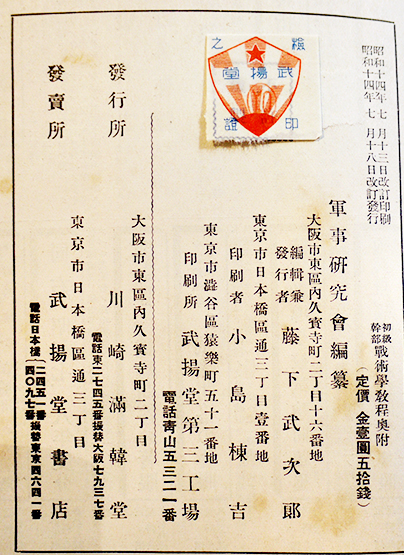 昭和十四年七月十三日改訂印刷
昭和十四年七月十八日改訂發行
初級幹部戰術學教程奥附
(定價 金壹圓五拾錢)
軍事研究會編纂
大阪市東區內久寶寺町二丁目十六番地
編輯兼發行者 藤下武次郎
東京市日本橋區通三丁目壹番地
印刷者 小島棟吉
東京市澁谷區猿樂町五十一番地
印刷所 武揚堂第三工場
電話靑山五三二一番
檢之印證
武揚堂
發行所
大阪市東區內久寶寺町二丁目
川崎滿韓堂
電話東二七四五番振替大阪七九三七番
發賣所
東京市日本橋區通三丁目
武揚堂書店
電話日本橋{二四五一番振替東京四六四一番
四〇九七番